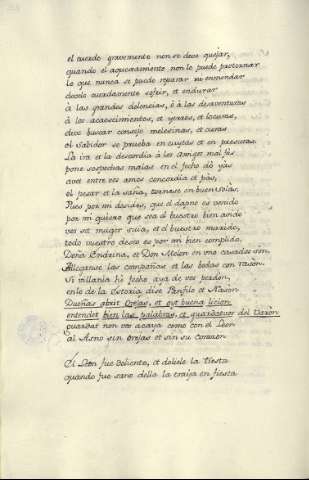 el cuerdo gravemente non se debe quejar,
quando el aquexamiento non le puede pro tornar
lo que nunca se puede reparar nin emmendar
develo cuerdamente sofrir, et endurar
à las grandes dolencias, è à las desaventuras
à los acaescimientos, et yerros, et locuras,
debe buscar consejo melesinas, et curas
el sabidor se prueba en cuytas et en presuras.
La ira et la discordia à los amigos mal fas
pone sospechas malas en el fecho dò yas
avet entre vos amos concordia et pàs,
el pesar et la saña, tornase en buen solas.
Pues por mi desides, que el dapno es venido
por mi quiero que sea el vuestro bien avido
vos sed muger suia, et el vuestro marido,
todo vuestro deseo es por mi bien complido.
Doña Endrina, et Don Melon en uno casados son.
Alegranse las compañas et las bodas con rason.
Si villanía hè fecho aya de vos perdon,
en lo de la Estoria dise Panfilo et Nason
Dueñas abrit Orejas, et oyt buena licion
entendet bien las palabras, et guardatvos del Varon
guardat non vos acaya como con el Leon
al Asno sin Orejas et sin su Corason

El Leon fue doliente, et doliele la tiesta
quando fue sano della la traìa en fiesta